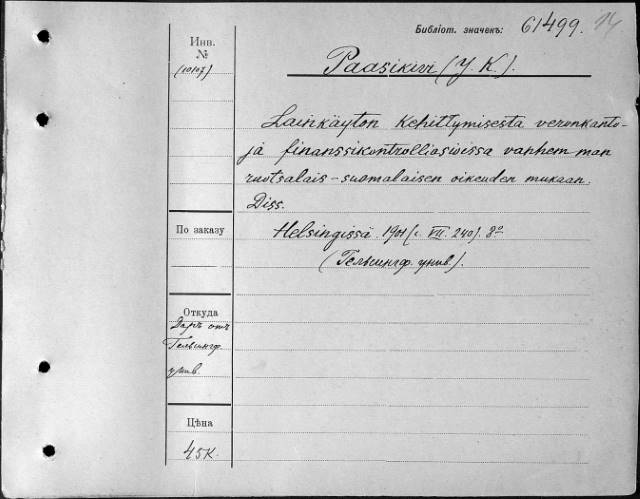 Библіот. значекъ: 61499. 14
Инв.
№
(10107)
Paasikivi (Y. K.).
Lainkäyton kehittymisesta veronkanto-
ja finanssikontrolliasioissa vanhemman
ruotsalais-suomalaisen oikeuden mukaan.
Diss.
По заказу
Helsingissä. 1901 (с. VII. 240). 8º
(Гельсингф. унив.).
Откуда
Даръ отъ
Гельсингф.
унив.
Цѣна
45 к.